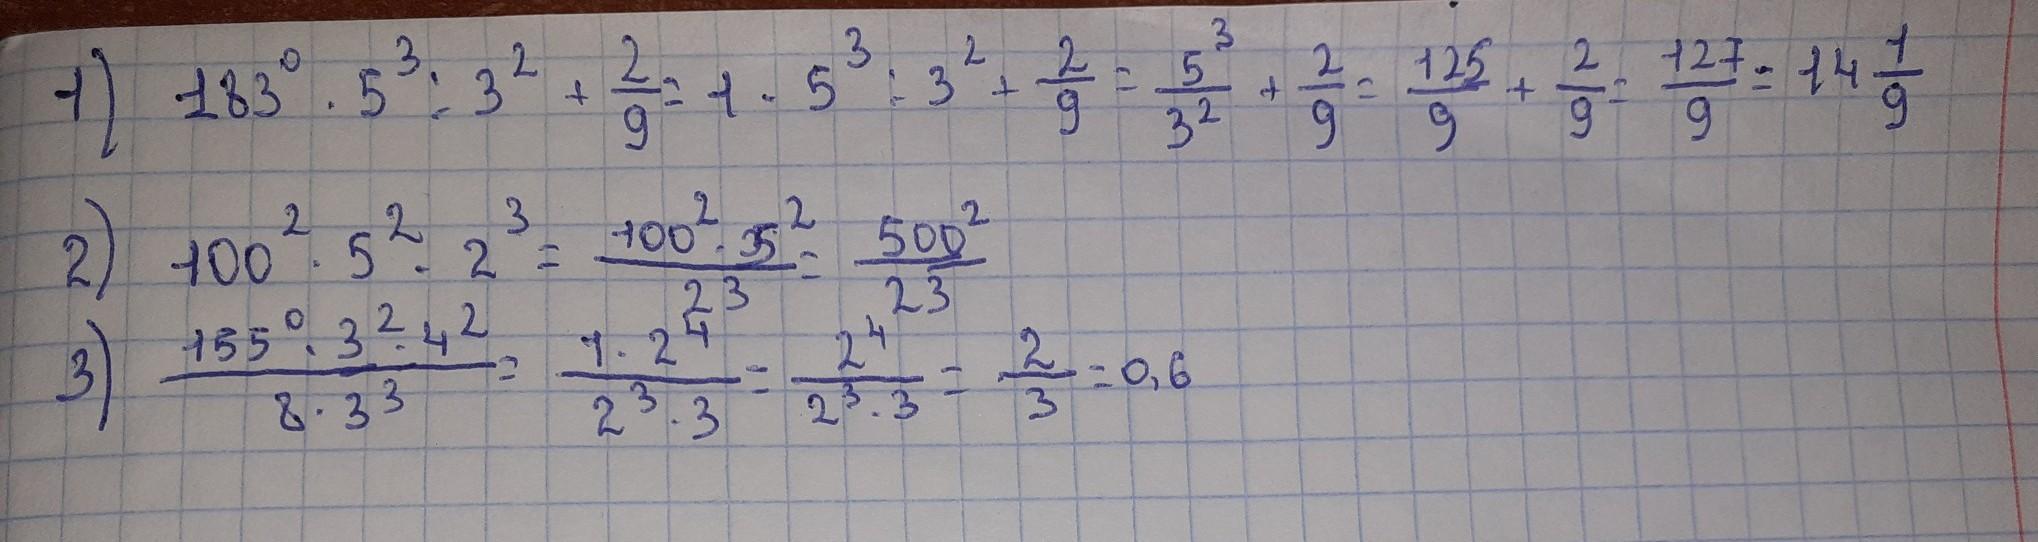 1) 183⁰ · 5³ : 3² + 2/9 = 1 · 5³ : 3² + 2/9 = 5³/3² + 2/9 = 125/9 + 2/9 = 127/9 = 14 1/9
2) 100² · 5² · 2³ = 100² · 5²/2³ = 500²/23
3) 155⁰ · 3² · 4²/8 · 3³ = 1 · 2⁴/2³ · 3 = 2⁴/2³ · 3 = 2/3 = 0,6